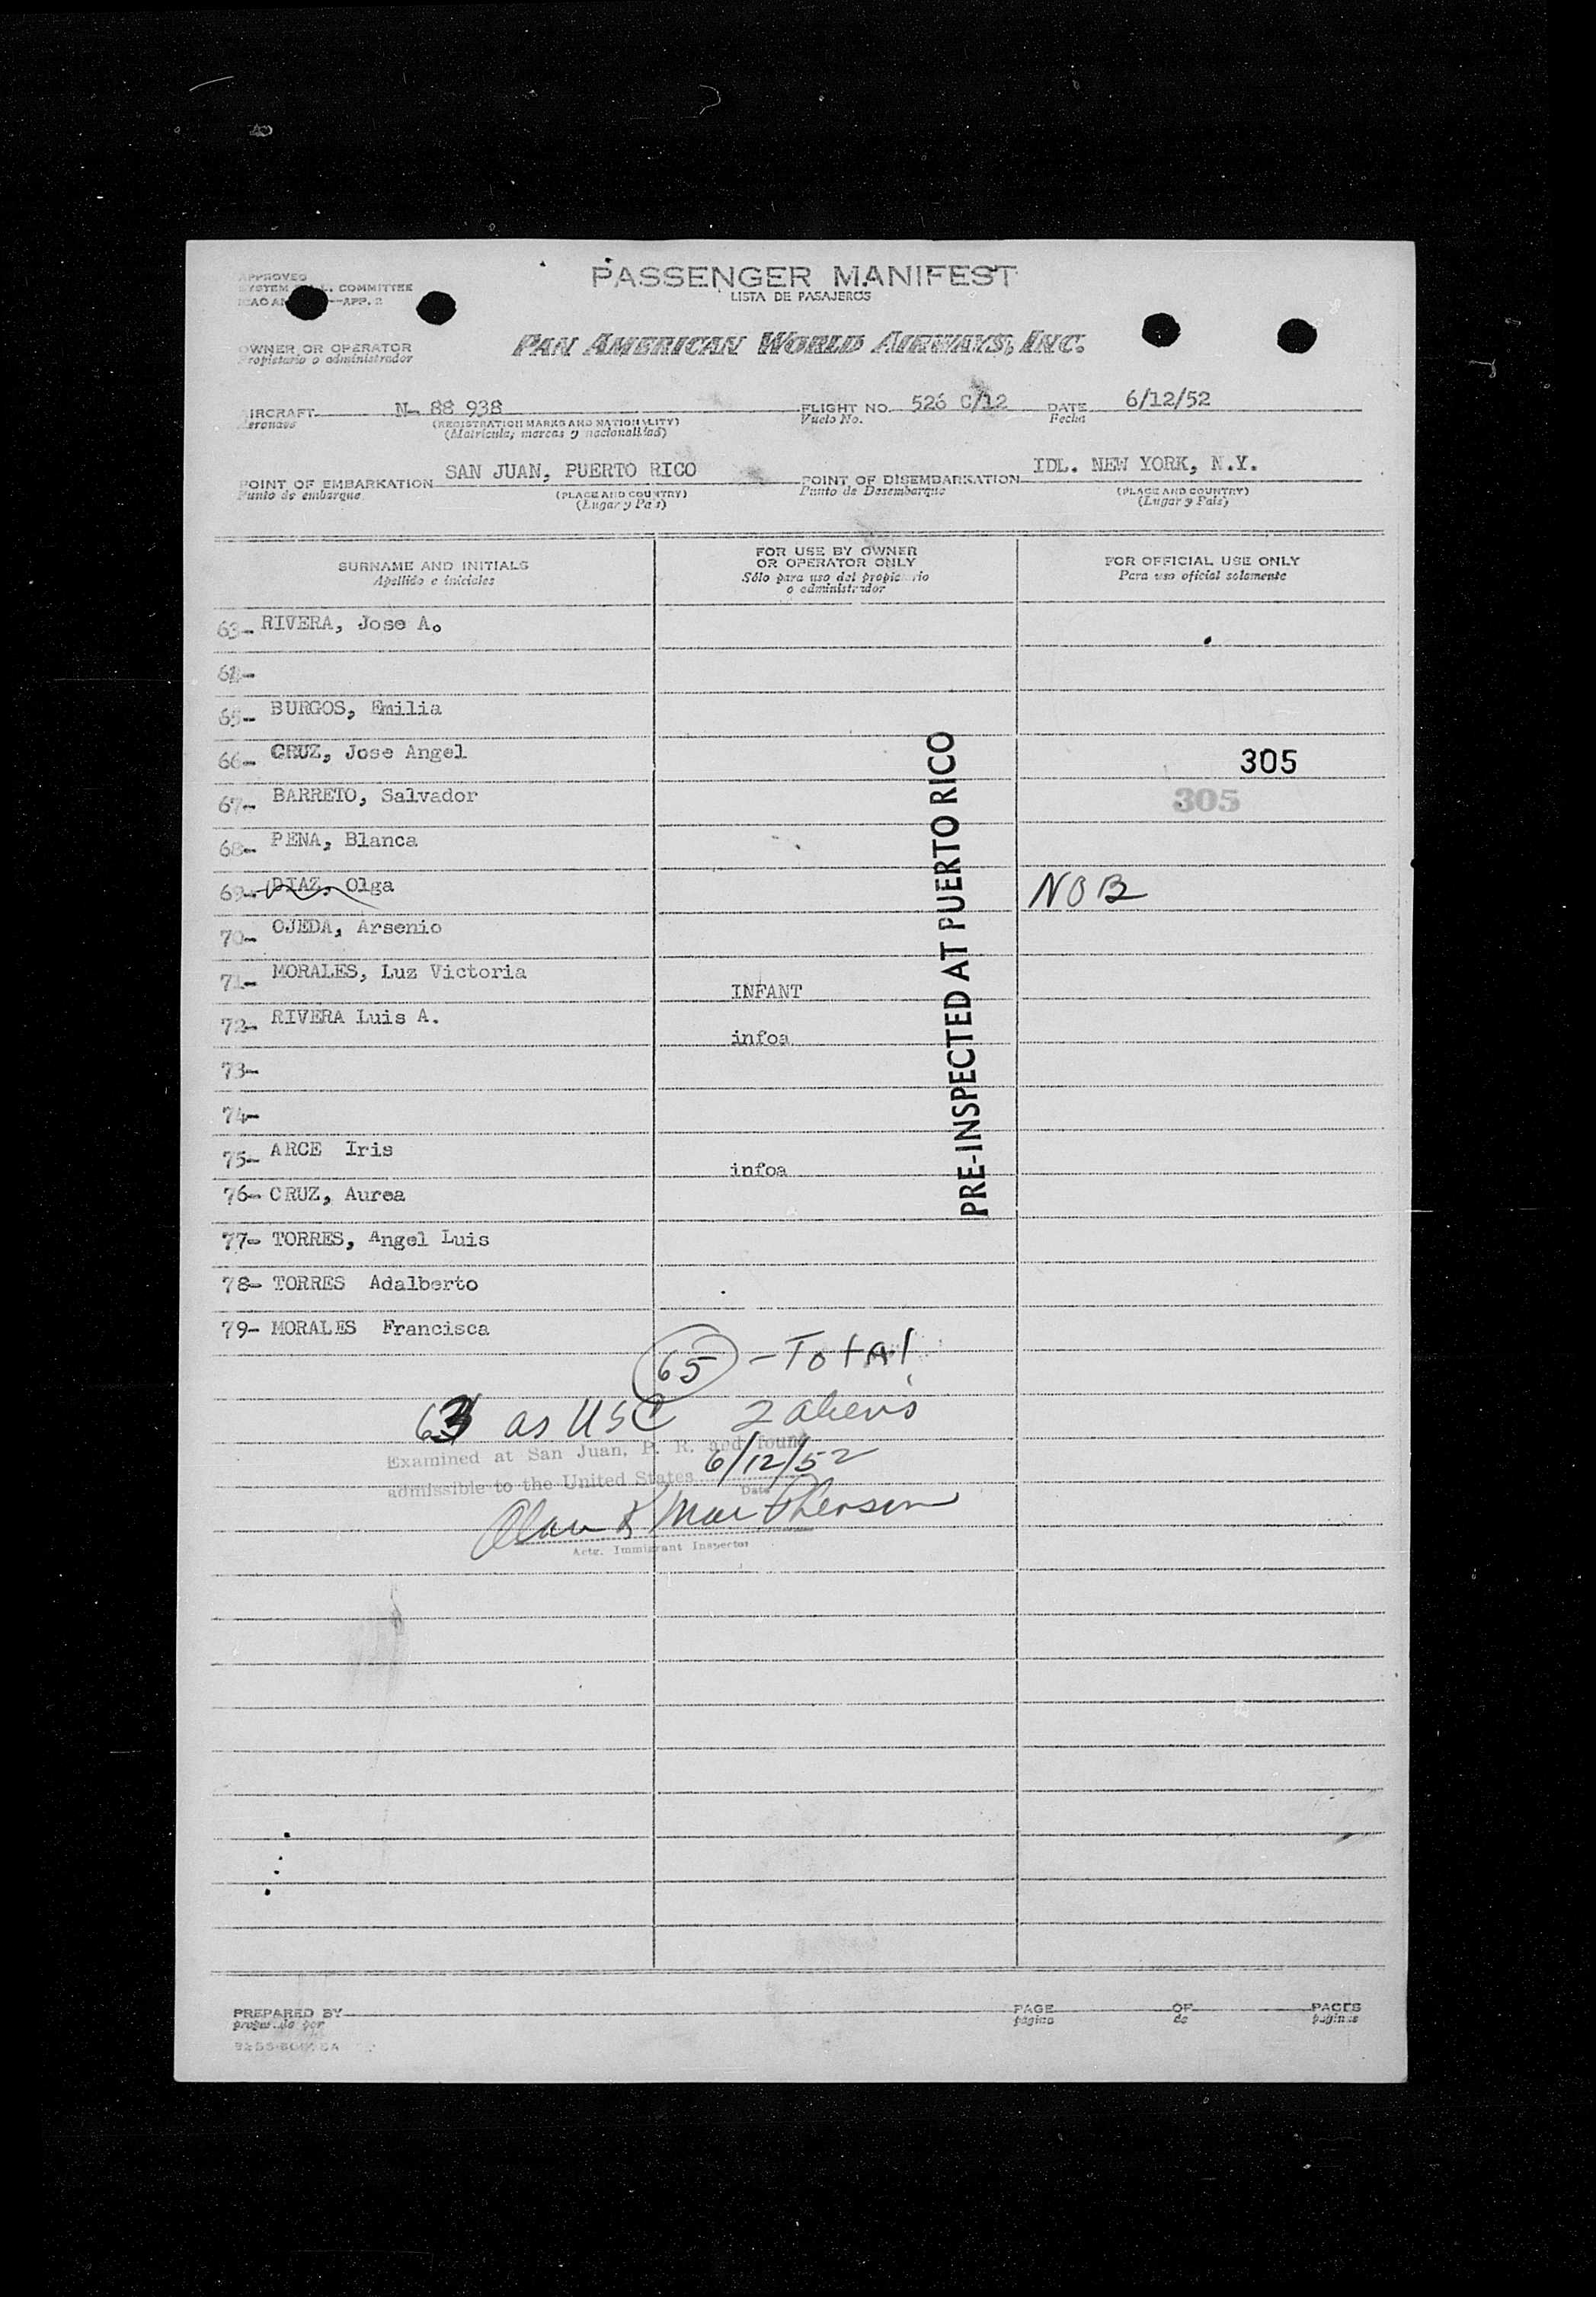 PASSENGER MANIFEST
LISTA DE PASAJEROS
APPROVED
SYSTEM COMMITTEE
ICAO AN —APP. 2
OWNER OR OPERATOR
Propietario o administrador
PAN AMERICAN WORLD AIRWAYS, INC.
AIRCRAFT N- 88 938 FLIGHT NO. 526 C/12 DATE 6/12/52
Aeronave (REGISTRATION MARKS AND NATIONALITY) Vuelo No. Fecha
(Matricula, marcas y nacionalidad)
POINT OF EMBARKATION SAN JUAN, PUERTO RICO POINT OF DISEMBARKATION IDL. NEW YORK, N.Y.
Punto de embarque (PLACE AND COUNTRY) Punto de Desembarque (PLACE AND COUNTRY)
(Lugar y Pais) (Lugar y Pais)
SURNAME AND INITIALS FOR USE BY OWNER OR OPERATOR ONLY FOR OFFICIAL USE ONLY
Apellido e iniciales Sólo para uso del propietario o administrador Para uso oficial solamente
63- RIVERA, Jose A.
64-
65- BURGOS, Emilia
66- CRUZ, Jose Angel 305
67- BARRETO, Salvador 305
68- PENA, Blanca
69- DIAZ, Olga NOB
70- OJEDA, Arsenio
71- MORALES, Luz Victoria INFANT
72- RIVERA Luis A. infoa
73-
74-
75- ARCE Iris infoa
76- CRUZ, Aurea
77- TORRES, Angel Luis
78- TORRES Adalberto
79- MORALES Francisca
PRE-INSPECTED AT PUERTO RICO
65 - Total
63 as USC 2 aliens
Examined at San Juan, P. R. and found
admissible to the United States 6/12/52
Date
Actg. Immigrant Inspector
PREPARED BY PAGE OF PAGES
preparado por página de páginas